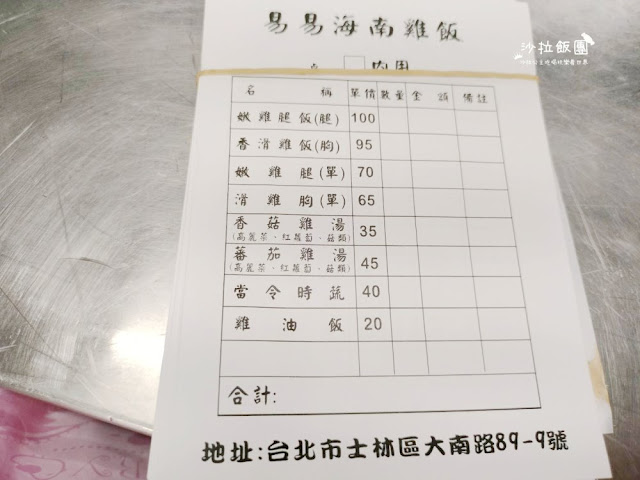 易易海南雞飯
沙拉飯團
內用
名 稱 單價 數量 金 額 備註
嫩雞腿飯(腿) 100
香滑雞飯(胸) 95
嫩雞腿(單) 70
滑雞胸(單) 65
香菇雞湯 35
(高麗菜、紅蘿蔔、菇類)
蕃茄雞湯 45
(高麗菜、紅蘿蔔、菇類)
當令時蔬 40
雞油飯 20
合計:
地址:台北市士林區大南路89-9號